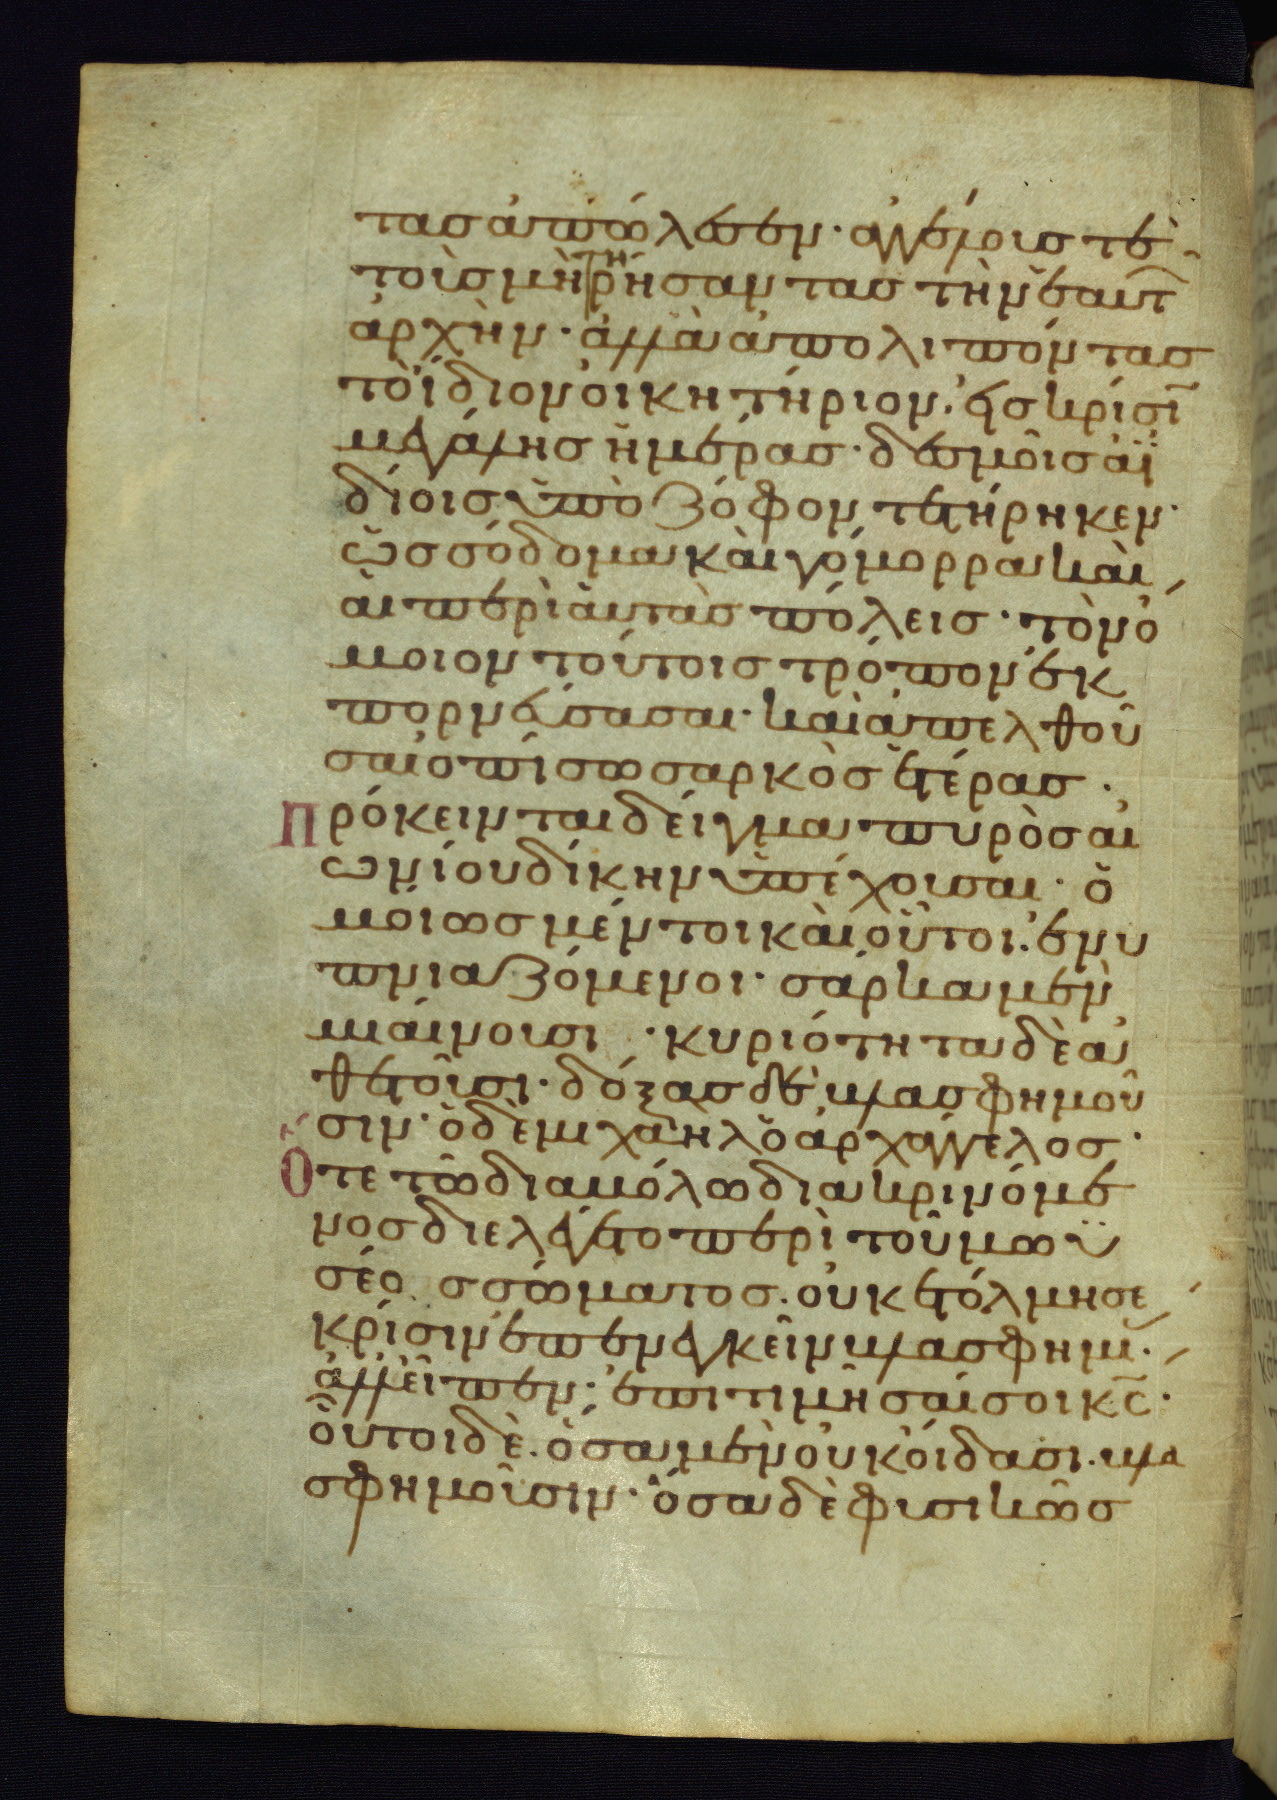 τας ἀπώλεσεν· ἀγγέλους τὲ
τοὺς μὴ τηρήσαντας τὴν ἑαυτ͂
ἀρχὴν· ἀλλὰ ἀπολιπόντας
τὸ ἴδιον οἰκητήριον· εἰς κρίσῑ
μεγάλης ἡμέρας· δεσμοῖς ἀϊ
δίοις ὑπὸ ζόφον τετήρηκεν·
ὡς σόδομα καὶ γόμορρα καὶ
αἱ περὶ αὐτὰς πόλεις· τὸν ὅ
μοιον τούτοις τρόπον ἐκ
πορνεύσασαι· καὶ ἀπελθοῦ
σαι ὀπίσω σαρκὸς ἑτέρας·
Πρόκεινται δείγμα πυρὸς αἰ
ωνίου δίκην ὑπέχουσαι· ὁ
μοίως μέντοι καὶ οὗτοι· ἐνυ
πνιαζόμενοι· σάρκα μὲν
μιαίνουσι· κυριότητα δὲ ἀ
θετοῦσι· δόξας δὲ βλασφημοῦ
σιν· ὁ δὲ μιχαὴλ ὁ ἀρχάγγελος·
Ὅτε τῶ διαβόλω διακρινόμε
νος διελέγετο περὶ τοῦ μωϋ
σέος σώματος· οὐκ ἐτόλμησε
κρίσιν ἐπενεγκεῖν βλασφημί·
ἀλλ' εἶπεν· ἐπιτιμῆσαί σοι κς̄·
οὗτοι δὲ· ὅσα μὲν οὐκ οἴδασι· βλα
σφημοῦσιν· ὅσα δὲ φυσικῶς